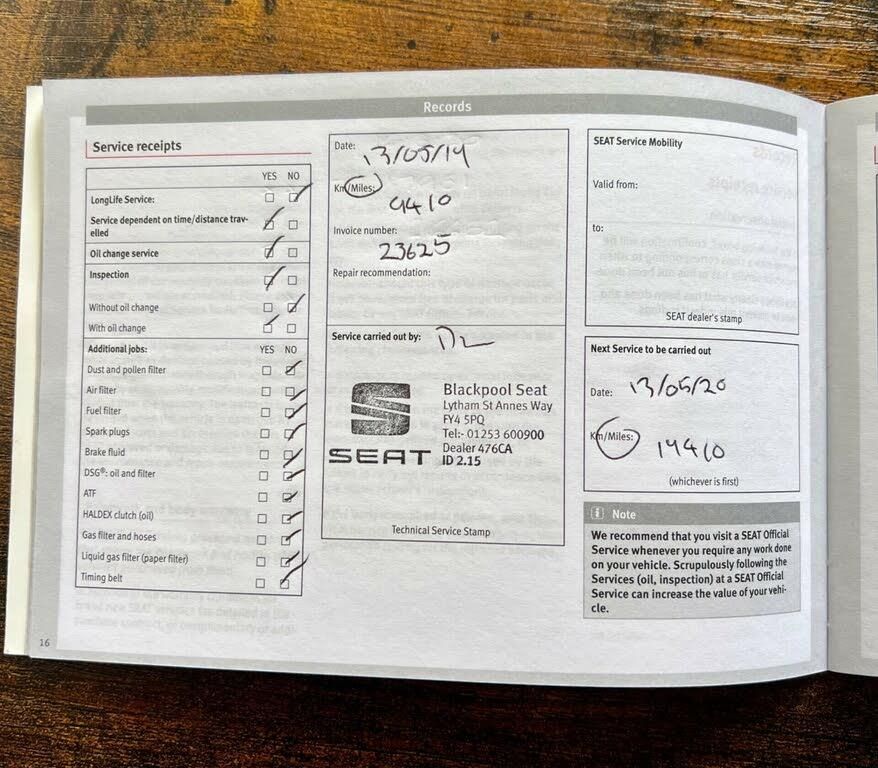 Records
Service receipts
YES NO
LongLife Service:
Service dependent on time/distance trav-
elled
Oil change service
Inspection
Without oil change
With oil change
Additional jobs: YES NO
Dust and pollen filter
Air filter
Fuel filter
Spark plugs
Brake fluid
DSG®: oil and filter
ATF
HALDEX clutch (oil)
Gas filter and hoses
Liquid gas filter (paper filter)
Timing belt
16
Date: 13/05/19
Km/Miles:
9410
Invoice number:
23625
Repair recommendation:
Service carried out by:
SEAT
Blackpool Seat
Lytham St Annes Way
FY4 5PQ
Tel:- 01253 600900
Dealer 476CA
ID 2.15
Technical Service Stamp
SEAT Service Mobility
Valid from:
to:
SEAT dealer's stamp
Next Service to be carried out
Date: 13/05/20
Km/Miles: 19410
(whichever is first)
i Note
We recommend that you visit a SEAT Official
Service whenever you require any work done
on your vehicle. Scrupulously following the
Services (oil, inspection) at a SEAT Official
Service can increase the value of your vehi-
cle.